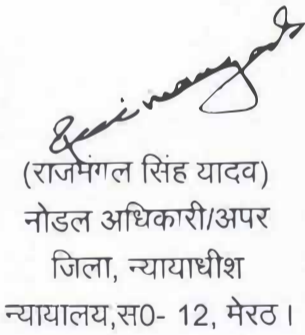 (राजमंगल सिंह यादव)
नोडल अधिकारी/अपर
जिला, न्यायाधीश
न्यायालय,स0- 12, मेरठ ।